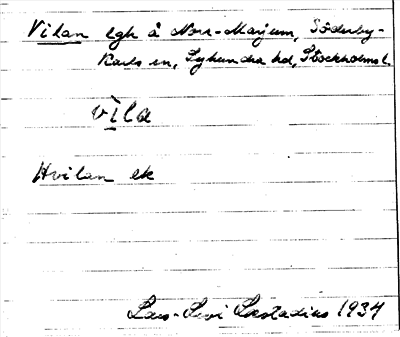 Vilan lgh å Norr-Marjum, Söderby-
Karls sn, Lyhundra hd, Stockholms l.
vìla
Hvilan ek
Lars-Levi Læstadius 1934